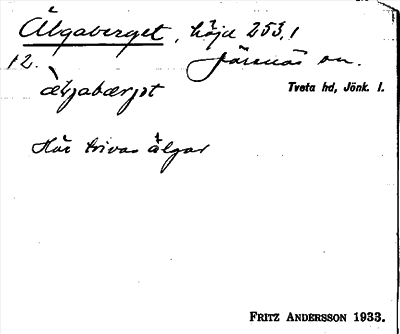 Älgaberget, höjd 253,1
12. Järsnäs sn.
Tveta hd, Jönk. l.
äljabærjət
Här trivas älgar
FRITZ ANDERSSON 1933.